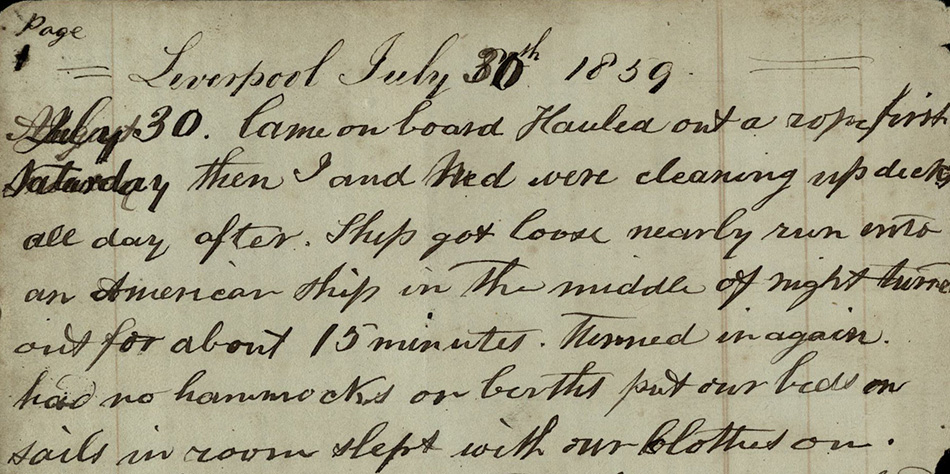 Page
1
Liverpool July 30th 1859.
July 30. Came on board Hauled out a rope first
Saturday then I and Ned were cleaning up decks
all day after. Ship got loose nearly run into
an American ship in the middle of night turned
out for about 15 minutes. Turned in again.
had no hammocks or berths put our beds on
sails in room slept with our Clothes on.